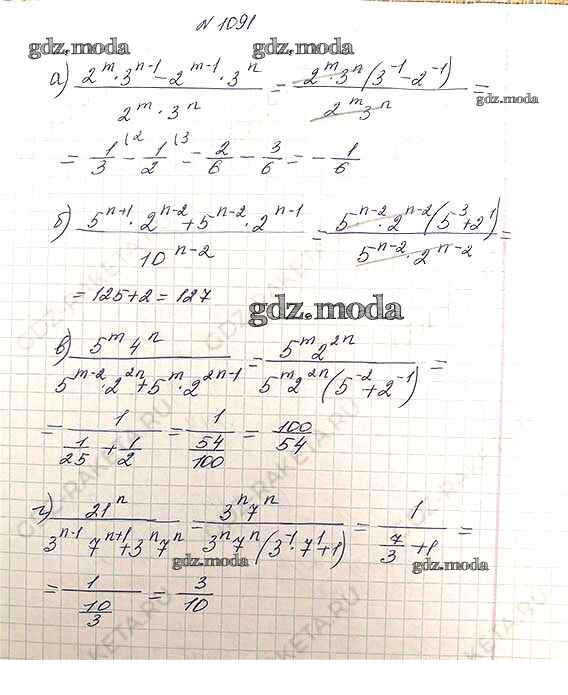 № 1091
gdz.moda gdz.moda
а) (2^m · 3^(n-1) - 2^(m-1) · 3^n) / (2^m · 3^n) = (2^m · 3^n (3^(-1) - 2^(-1))) / (2^m 3^n) =
gdz.moda
= 1/3 (2 - 1/2 (3 = 2/6 - 3/6 = - 1/6
б) (5^(n+1) · 2^(n-2) + 5^(n-2) · 2^(n-1)) / 10^(n-2) = (5^(n-2) · 2^(n-2) (5^3 + 2^1)) / (5^(n-2) · 2^(n-2)) =
= 125 + 2 = 127
gdz.moda
в) (5^m 4^n) / (5^(m-2) · 2^(2n) + 5^m · 2^(2n-1)) = (5^m 2^(2n)) / (5^m 2^(2n) (5^(-2) + 2^(-1))) =
= 1 / (1/25 + 1/2) = 1 / (54/100) = 100/54
gdz.moda
г) 21^n / (3^(n-1) 7^(n+1) + 3^n 7^n) = (3^n 7^n) / (3^n 7^n (3^(-1) · 7^1 + 1)) = 1 / (7/3 + 1) =
gdz.moda gdz.moda
= 1 / (10/3) = 3/10
gdz.moda
GDZ-RAKETA.RU